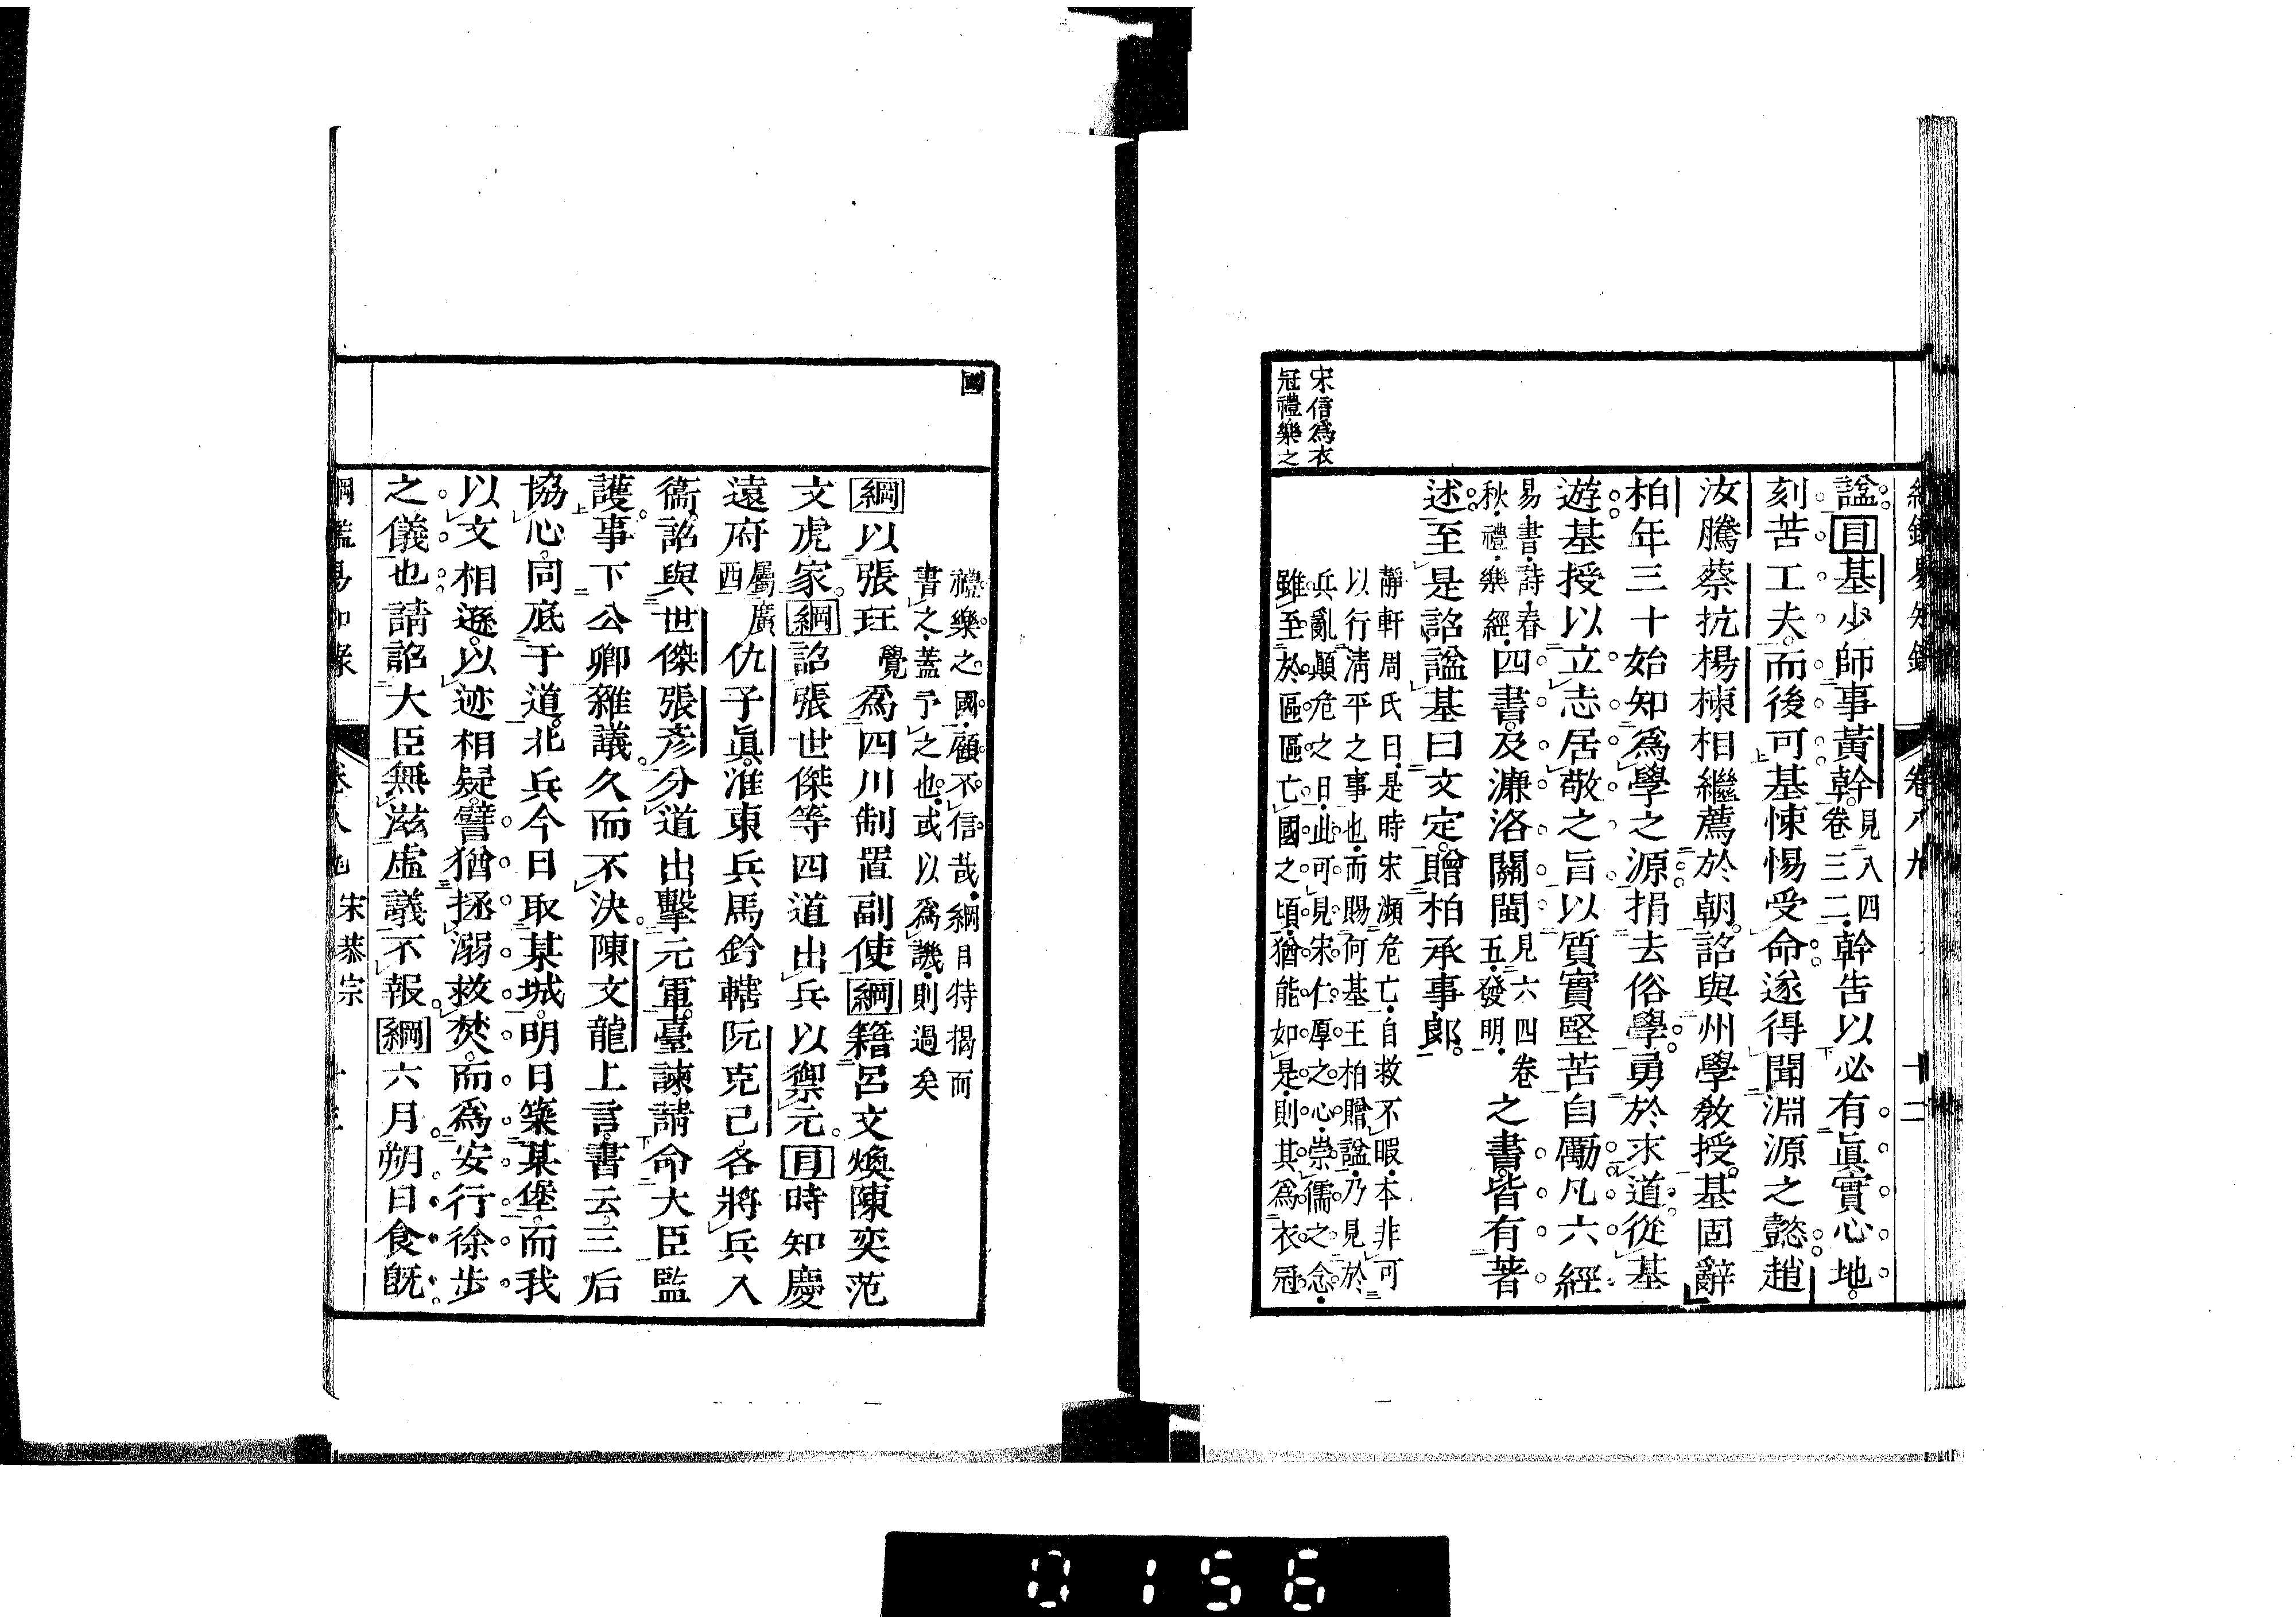 綱鑑易知錄 卷八九 十二
諡目基少師事黃榦見八四卷三二榦告以必有眞實心地
刻苦工夫而後可基悚惕受命遂得聞淵源之懿趙
汝騰蔡抗楊棟相繼薦於朝詔與州學教授基固辭
柏年三十始知爲學之源捐去俗學勇於求道從基
遊基授以立志居敬之旨以質實堅苦自勵凡六經
易書詩春秋禮樂經四書及濂洛關閩見六四卷五發明之書皆有著
述至是詔諡基曰文定贈柏承事郎
靜軒周氏曰是時宋瀕危亡自救不暇本非可
以行淸平之事也而賜何基王柏贈諡乃見於
兵亂顚危之日此可見宋仁厚之心崇儒之念
雖至於區區亡國之頃猶能如是則其爲衣冠
宋信爲衣
冠禮樂之
國
禮樂之國顧不信哉綱目特揭而
書之蓋予之也或以爲譏則過矣
綱以張珏覺爲四川制置副使綱籍呂文煥陳奕范
文虎家綱詔張世傑等四道出兵以禦元目時知慶
遠府屬廣西仇子眞淮東兵馬鈐轄阮克己各將兵入
衞詔與世傑張彥分道出擊元軍臺諫請命大臣監
護事下公卿雜議久而不決陳文龍上言書云三后
協心同底于道北兵今日取某城明日築某堡而我
以文相遜以迹相疑譬猶拯溺救焚而爲安行徐步
之儀也請詔大臣無滋虛議不報綱六月朔日食旣
綱鑑易知錄 卷八九 宋恭宗 十三
0156